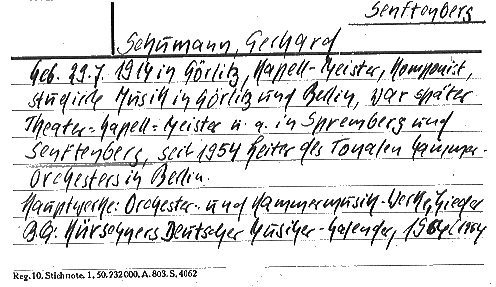 Senftenberg
Schumann, Gerhard
Geb. 29.7.1914 in Görlitz, Kapell-Meister, Komponist,
studierte Musik in Görlitz und Berlin, war später
Theater-Kapell-Meister u. a. in Spremberg und
Senftenberg, seit 1954 Leiter des Tonalen Kammer-
Orchesters in Berlin.
Hauptwerke: Orchester- und Kammermusik-Werke, Lieder
BQ: Kürschners Deutscher Musiker-Kalender, 1954
Reg. 10. Stichnote. 1, 50. 232000. A. 803. S. 4062